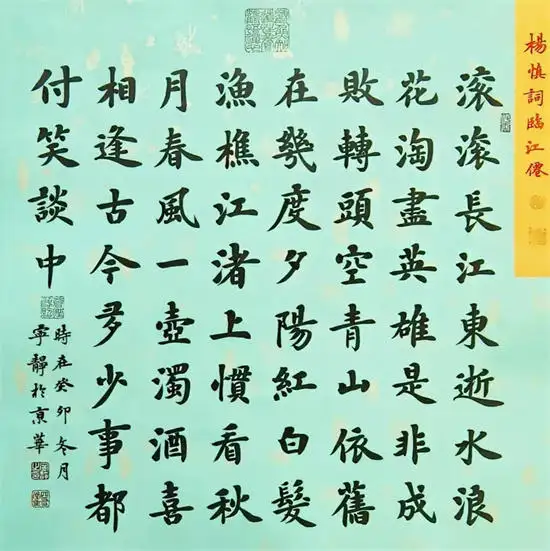 楊慎詞臨江僊
滾滾長江東逝水浪
花淘盡英雄是非成
敗轉頭空青山依舊
在幾度夕陽紅白髮
漁樵江渚上慣看秋
月春風一壺濁酒喜
相逢古今多少事都
付笑談中
時在癸卯冬月
寧靜於京華